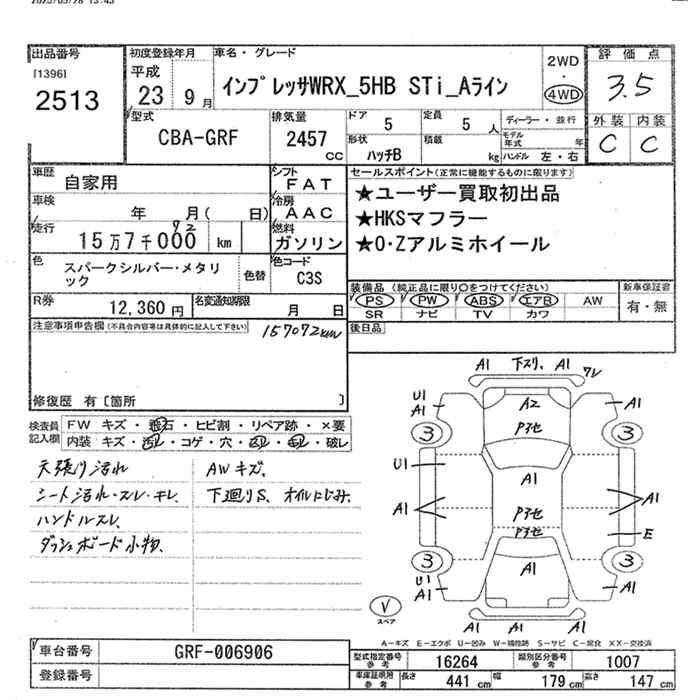 出品番号
[1396]
2513
初度登録年月
平成
23 9月
車名・グレード
インプレッサWRX_5HB STi_Aライン
2WD
・
4WD
評価点
3.5
外装 内装
C C
型式
CBA-GRF
排気量
2457
cc
ドア
5
定員
5 人
形状
ハッチB
積載
kg
ディーラー・並行
モデル年式 年
ハンドル 左・右
車歴
自家用
シフト
FAT
車検
年 月( 日)
冷房
AAC
走行
15万7千000 km
燃料
ガソリン
色
スパークシルバー・メタリック
色替
色コード
C3S
セールスポイント(正常に機能するものに限ります)
★ユーザー買取初出品
★HKSマフラー
★O・Zアルミホイール
装備品 (純正品に限り○をつけてください)
PS PW ABS エアB AW
SR ナビ TV カワ
新車保証書
有・無
R券
12,360円
名変通知期限
月 日
後日品
注意事項申告欄(不具合内容等は具体的に記入して下さい)
157072km
修復歴 有〔箇所 〕
検査員記入欄
FW キズ・飛石・ヒビ割・リペア跡・×要
内装 キズ・汚レ・コゲ・穴・スレ・キレ・破レ
天張り汚れ
シート汚れ・スレ・キレ
ハンドルスレ、
ダッシュボード小物、
AWキズ、
下廻りS、オイルにじみ、
A1 下スリ、A1 ワレ
U1
A1
A2
A1
3
Pアセ
3
U1
A1
A1
Pアセ
A1
Pアセ
E
3
3
U1
A1
A1
A1
A1 A1
V
スペア
A-キズ E-エクボ U-凹み W-補修跡 S-サビ C-腐食 XX-交換済
車台番号
GRF-006906
登録番号
型式指定番号
参考
16264
類別区分番号
参考
1007
車庫証明用
参考
長さ
441 cm
幅
179 cm
高さ
147 cm